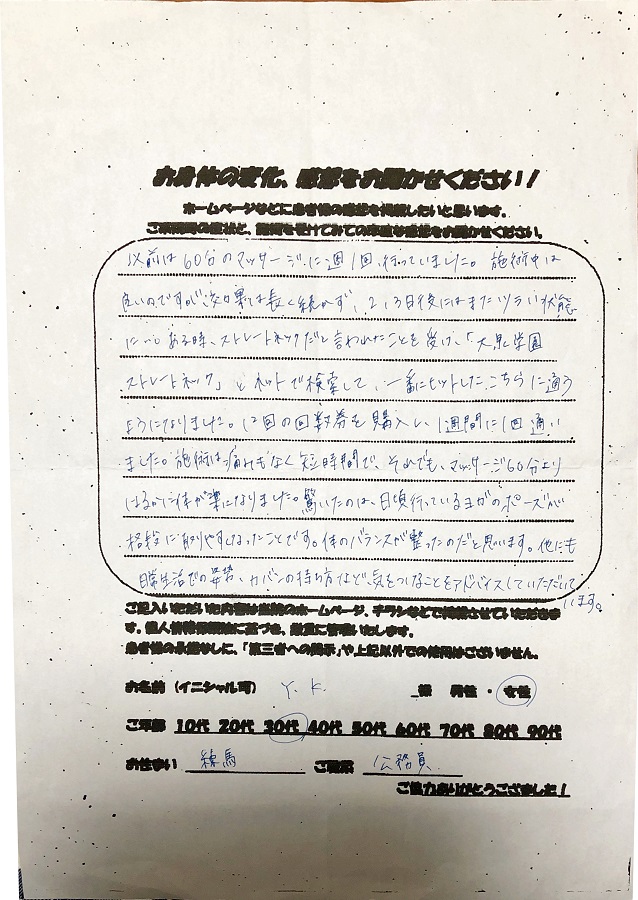 お身体の変化、感想をお聞かせください！
ホームページなどに患者様の感想を掲載したいと思います。
ご来院時の症状と、施術を受けてみての率直な感想をお聞かせください。
以前は60分のマッサージに週1回、行っていました。施術中は
良いのですが、効果は長く続かず、2、3日後にはまたツラい状態
に…。ある時、ストレートネックだと言われたことを受け、「大泉学園
ストレートネック」とネットで検索して、一番にヒットしたこちらに通う
ようになりました。12回の回数券を購入し、1週間に1回通い
ました。施術は痛みもなく短時間で、それでも、マッサージ60分より
はるかに体が楽になりました。驚いたのは、日頃行っているヨガのポーズが
格段に取りやすくなったことです。体のバランスが整ったのだと思います。他にも
日常生活での姿勢、カバンの持ち方など、気をつけることをアドバイスしていただいて
います。
ご記入いただいた内容は当院のホームページ、チラシなどで掲載させていただきま
す。個人情報保護法に基づき、厳重に管理いたします。
患者様の承諾なしに、「第三者への開示」や上記以外での使用はございません。
お名前（イニシャル可） Y. K. 様 男性 ・ 女性
ご年齢 10代 20代 30代 40代 50代 60代 70代 80代 90代
お住まい 練馬 ご職業 公務員
ご協力ありがとうございました！